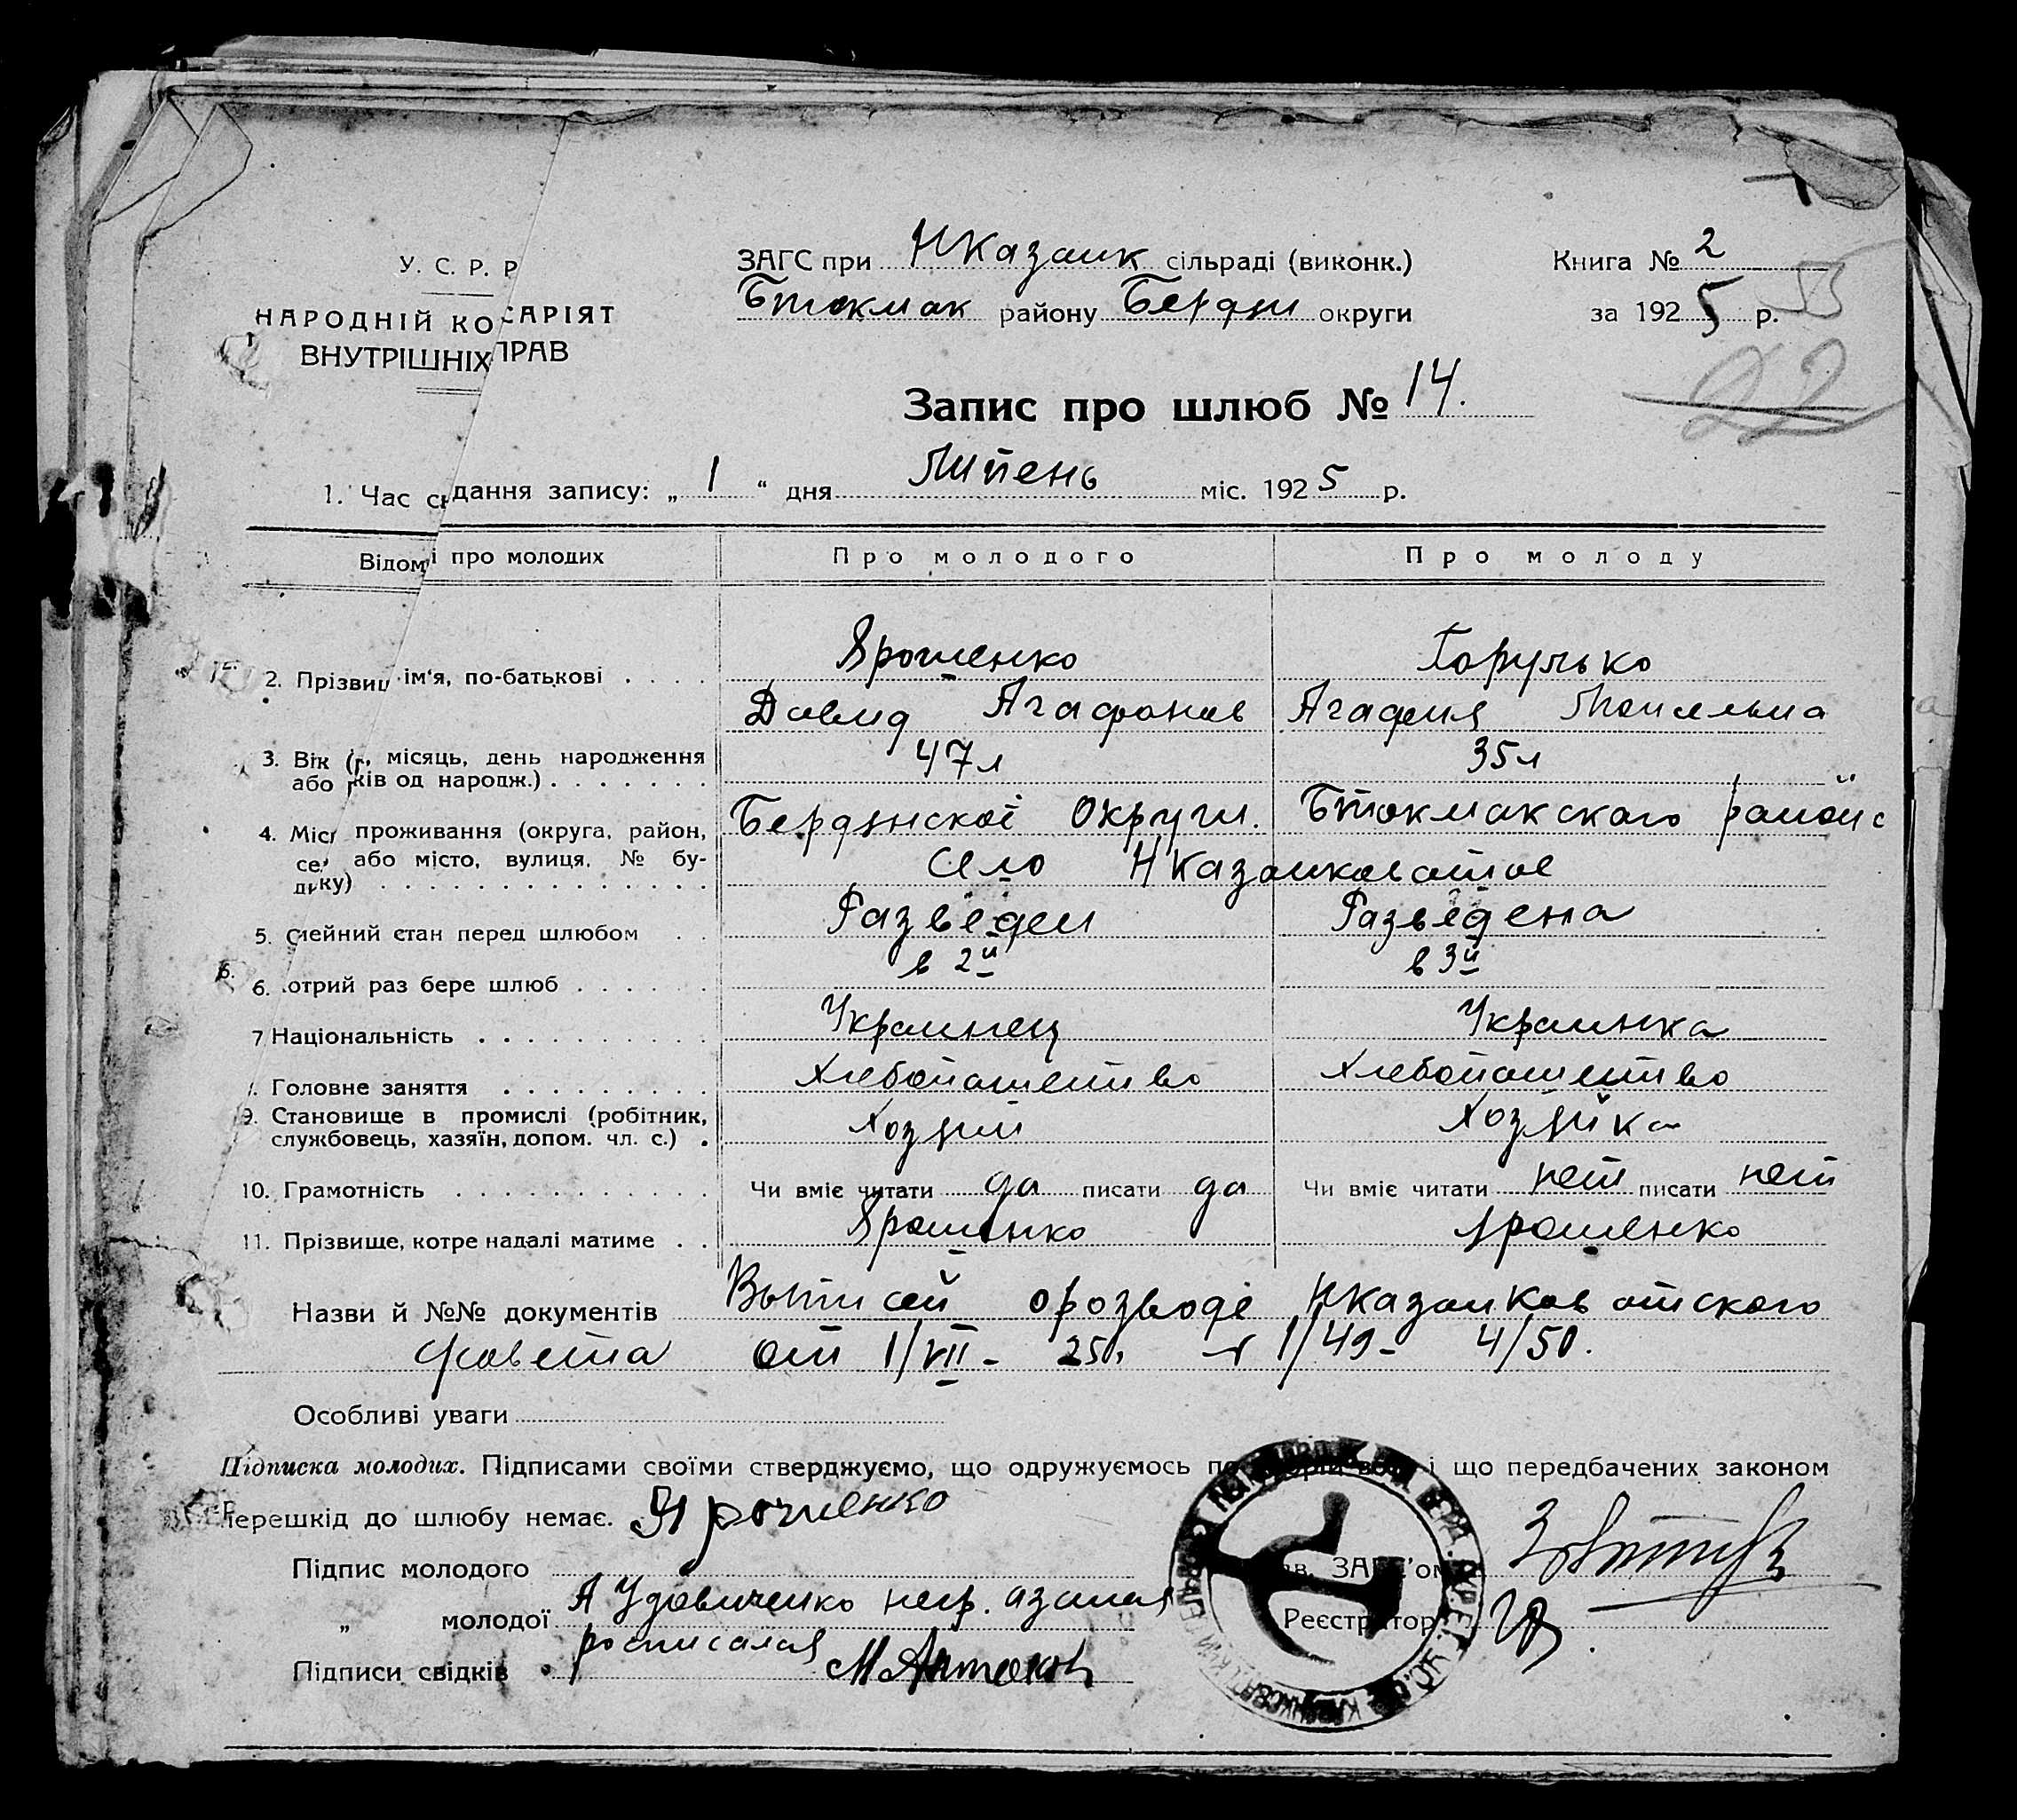 У. С. Р. Р
НАРОДНІЙ КО САРІЯТ
ВНУТРІШНІХ ПРАВ
ЗАГС при НКазанк сільраді (виконк.)
Бтокмак району Бердян округи
Книга № 2
за 1925 р. 55
22
Запис про шлюб № 14.
1. Час ск дання запису: „ 1 “ дня Липень міс. 1925 р.
Відом і про молодих Про молодого Про молоду
2. Прізвищ ім'я, по-батькові Ярошенко Горулько
Давид Агафонов Агафия
3. Вік (р, місяць, день народження або ків од народж.) 47 л 35 л
4. Міс проживання (округа, район, Бердянскоі Округи. Бтокмакского района
се, або місто, вулиця, № бу- Село НКазанковатое
ди ку)
5. мейний стан перед шлюбом Разведен Разведена
6. отрий раз бере шлюб в 2й в 3й
7 Національність Украинец Украинка
. Головне заняття Хлебопашество Хлебопашество
9. Становище в промислі (робітник, службовець, хазяїн, допом. чл. с.) Хозяин Хозяйка
10. Грамотність Чи вміє читати да писати да Чи вміє читати нет писати нет
11. Прізвище, котре надалі матиме Ярошенко Ярошенко
Назви й №№ документів Выписей о розводе НКазанковатского
с/совета от 1/VII - 25 г 1/49 - 4/50.
Особливі уваги
Підписка молодих. Підписами своїми стверджуємо, що одружуємось по волі і що передбачених законом
перешкід до шлюбу немає. Ярошенко
Підпис молодого
Зав. ЗАГС'ом
„ молодої А Удовиченко негр. азаная
Реєстратор
росписалая
Підписи свідків М Антонов